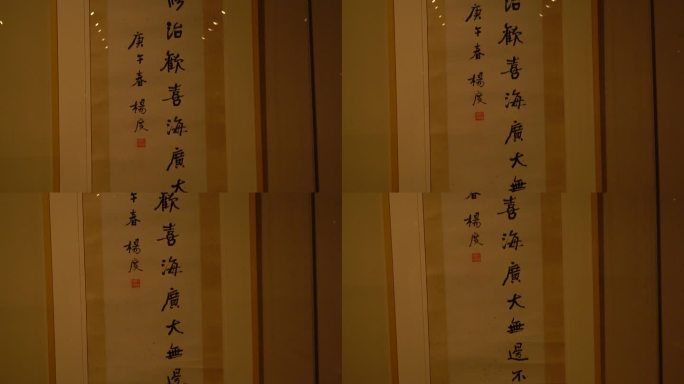 治歡喜海廣大
庚午春 楊度
治歡喜海廣大無
庚午春 楊度
歡喜海廣大無邊
午春 楊度
喜海廣大無邊不
春 楊度